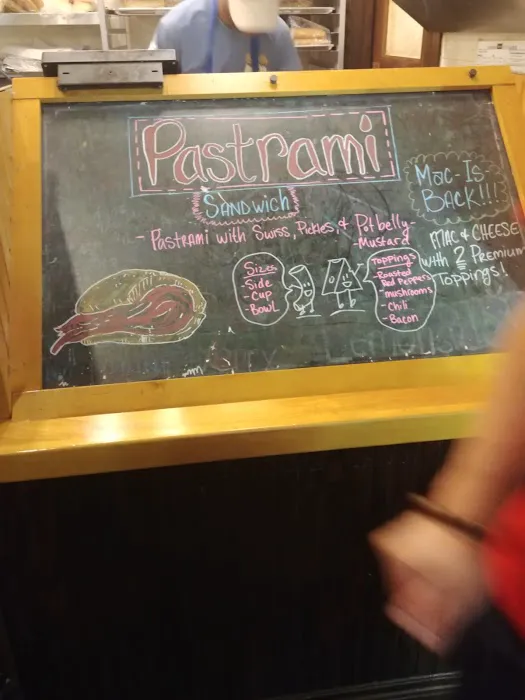 Pastrami
SANDWICH
- PASTRAMI with SWISS, PICKLES, & Potbelly
-MUSTARD
Sizes
- Side
- Cup
- BOWL
Toppings
- Roasted
Red Peppers
- mushrooms
- Chili
- Bacon
MaC-Is
BACK!!!
MAC & CHEESE
with 2 Premium
Toppings!